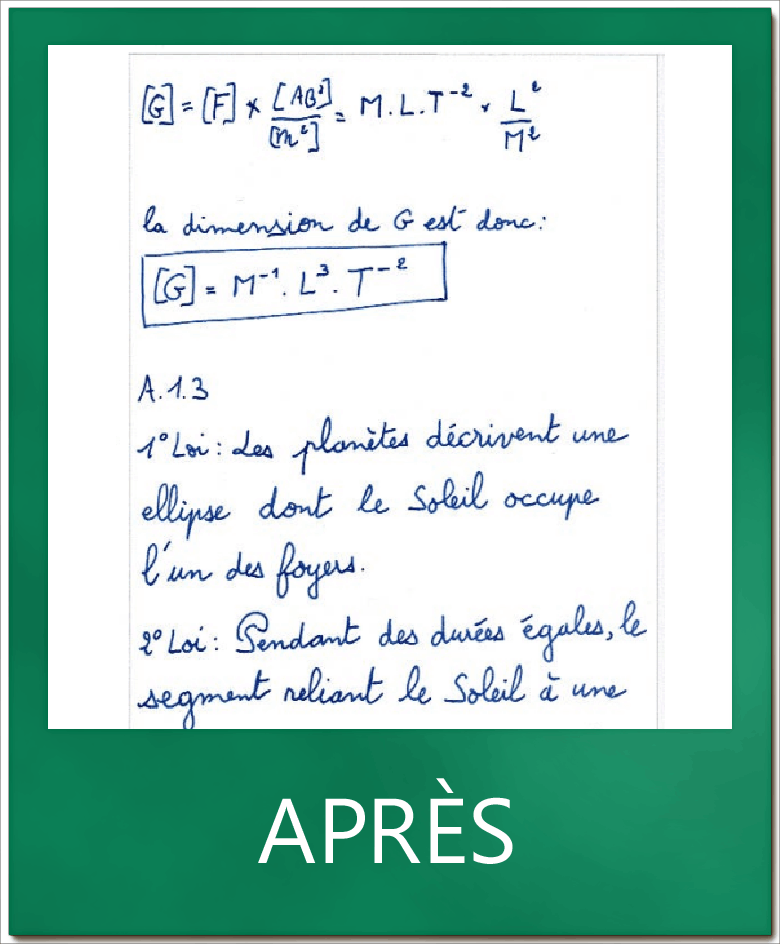 [G] = [F] × [AB²]/[m²] = M.L.T⁻² × L²/M²
la dimension de G est donc:
[G] = M⁻¹. L³. T⁻²
A.1.3
1° Loi : Les planètes décrivent une
ellipse dont le Soleil occupe
l'un des foyers.
2° Loi : Pendant des durées égales, le
segment reliant le Soleil à une
APRÈS